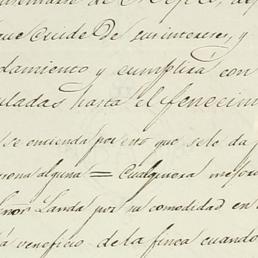 que cuide de sus intereses, y
damiento y cumplirá con
uladas hasta el fenecim
se encienda por esto que se le da p
rsona alguna = Cualquiera mejora
Señor Landa por su comodidad en
beneficio de la finca cuando